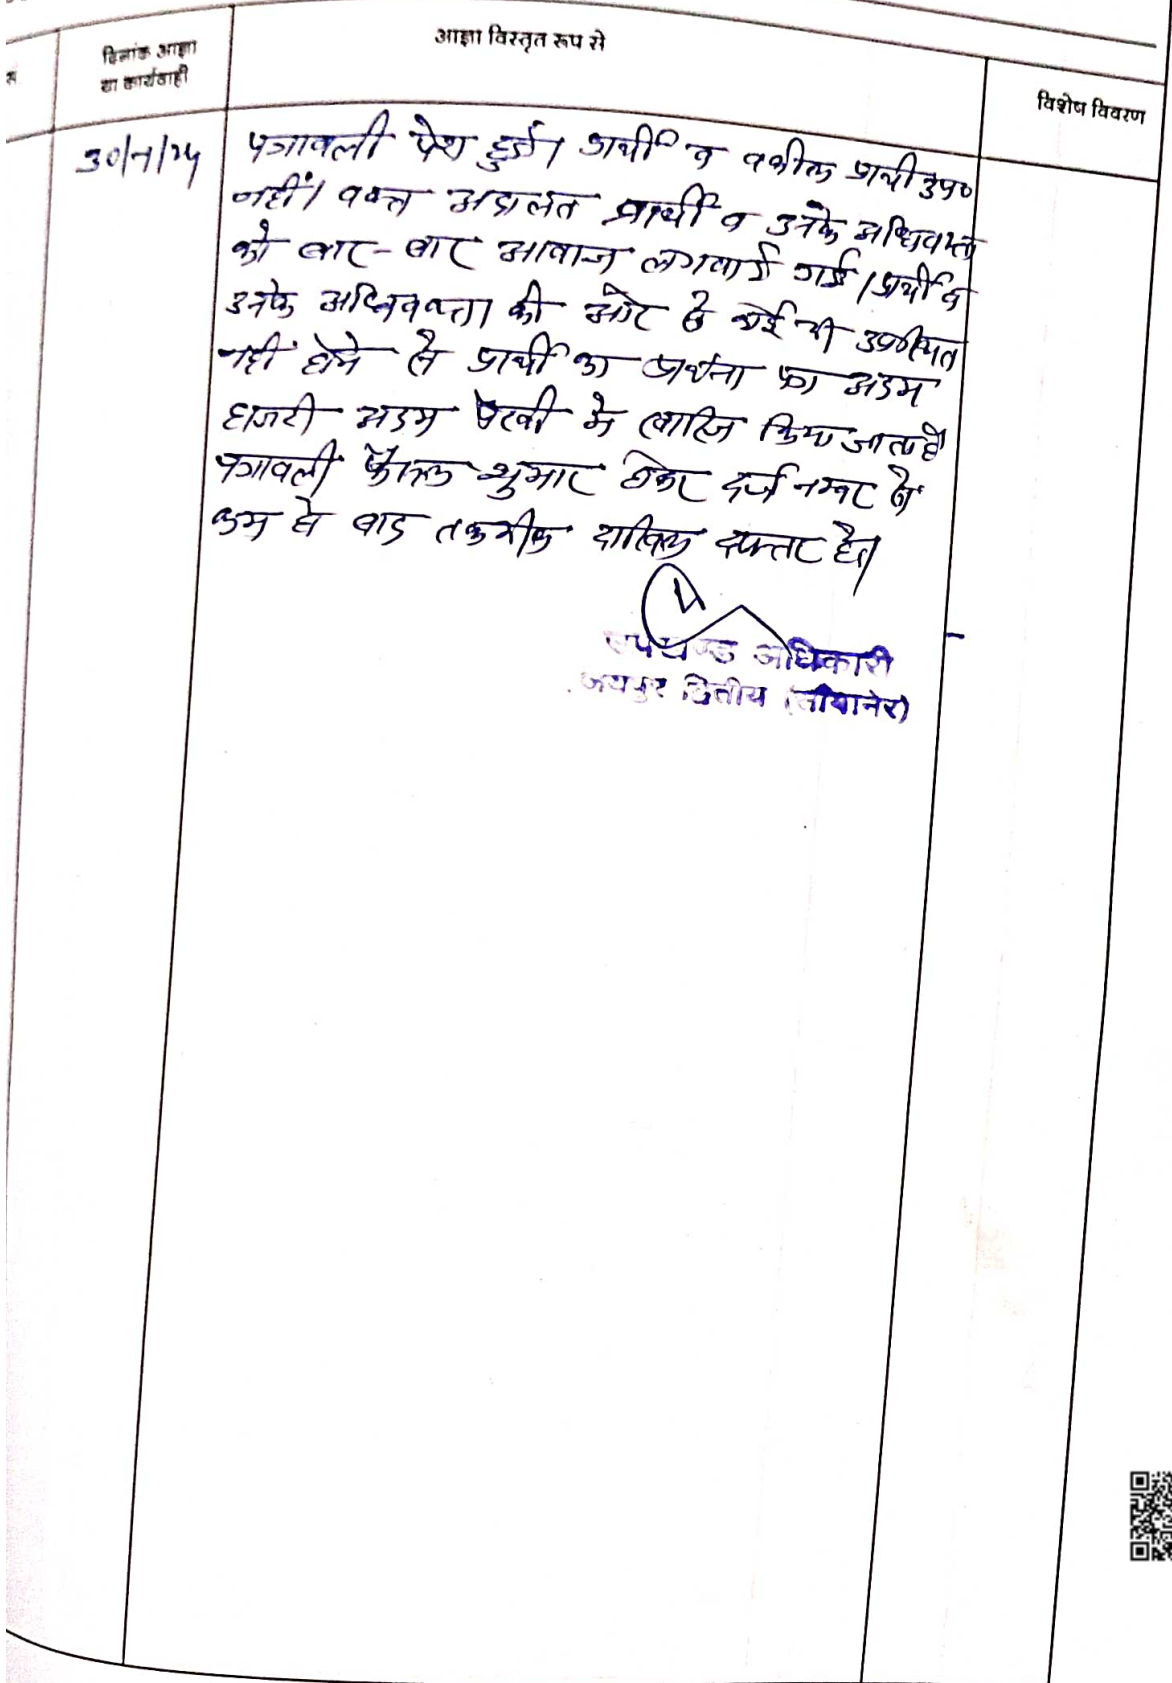 आज्ञा विस्तृत रूप से
दिनांक आज्ञा
या कार्यवाही
विशेष विवरण
पत्रावली पेश हुई। प्रार्थी व वकील प्रार्थी उप०
नहीं। वक्त अदालत प्रार्थी व उनके अधिवक्ता
को बार-बार आवाज लगवाई गई। प्रार्थी व
उनके अधिवक्ता की ओर से कोई भी उपस्थित
नहीं होने से प्रार्थी का प्रार्थना पत्र अदम
हाजरी अदम पैरवी में खारिज किया जाता है
पत्रावली फैसल शुमार होकर दर्ज नम्बर से
कम हो बाद तकमील दाखिल दफ्तर हो।
उपखण्ड अधिकारी
जयपुर द्वितीय (सांगानेर)